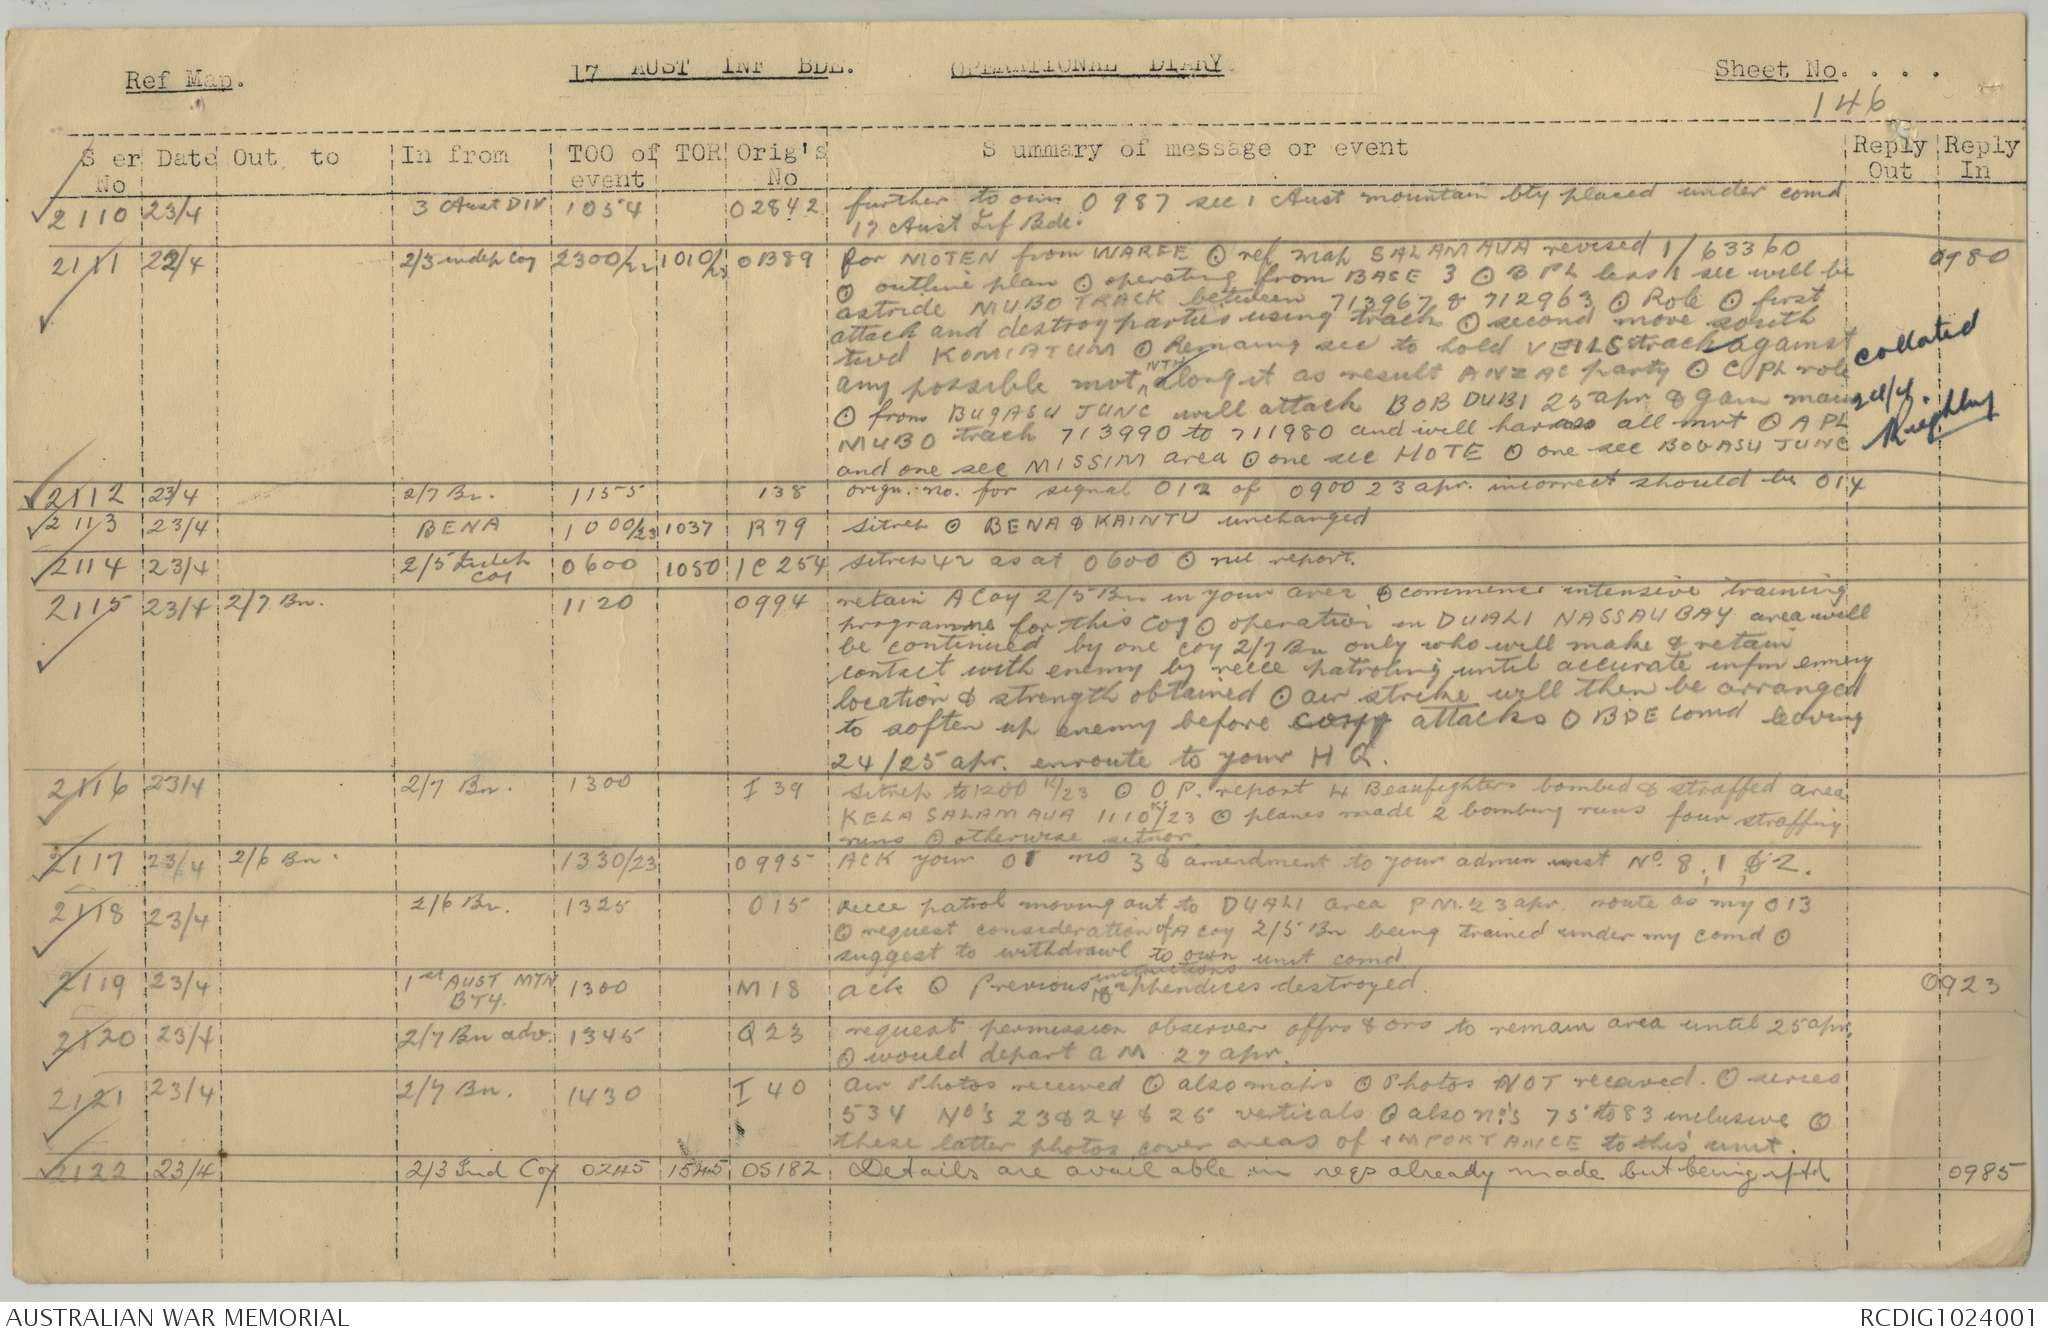 Ref Map. 17 AUST INF BDE. OPERATIONAL DIARY Sheet No. . . .
146
Ser No Date Out to In from TOO of event TOR Orig's No Summary of message or event Reply Out Reply In
2110 23/4 3 Aust DIV 1054 02842 further to own 0987 sec 1 Aust mountain bty placed under comd
17 Aust Inf Bde.
2111 22/4 2/3 indep Coy 2300/22 1010/23 01389 for MOTEN from WARFE ⊙ ref map SALAMAUA revised 1/63360 0980
⊙ outline plan ⊙ operating from BASE 3 ⊙ B PL less 1 sec will be
astride MUBO TRACK between 713967 & 712963 ⊙ Role ⊙ first
attack and destroy parties using track ⊙ second move south
twd KOMIATUM ⊙ Remaing sec to hold VEILS track against
any possible mvt NTH along it as result ANZAC party ⊙ C PL role
⊙ from BUGASU JUNC will attack BOBDUBI 25 apr & gain main
MUBO track 713990 to 711980 and will harass all mvt ⊙ A PL
and one sec MISSIM area ⊙ one sec HOTE ⊙ one sec BOUASU JUNC
collated
24/4.
2112 23/4 2/7 Bn. 1155 138 orign. no. for signal 012 of 0900 23 apr. incorrect should be 014
2113 23/4 BENA 1000/23 1037 R79 sitrep ⊙ BENA & KAINTU unchanged
2114 23/4 2/5 Indep Coy 0600 1050 IC 254 sitrep 42 as at 0600 ⊙ nil report.
2115 23/4 2/7 Bn. 1120 0994 retain A Coy 2/5 Bn in your area ⊙ commence intensive training
programme for this Coy ⊙ operation in DUALI NASSAU BAY area will
be continued by one coy 2/7 Bn only who will make & retain
contact with enemy by recce patroling until accurate infm enemy
location & strength obtained ⊙ air strike will then be arranged
to soften up enemy before attacks ⊙ BDE Comd leaving
24/25 apr. enroute to your H Q.
2116 23/4 2/7 Bn. 1300 I 39 sitrep to 1200 K/23 ⊙ O P. report 4 Beaufighters bombed & straffed area
KELA SALAMAUA 1110K/23 ⊙ planes made 2 bombing runs four straffing
runs ⊙ otherwise sitnor.
2117 23/4 2/6 Bn. 1330/23 0995 ACK your OI no 3 & amendment to your admin inst No. 8, 1, & 2.
2118 23/4 2/6 Bn. 1325 015 Recce patrol moving out to DUALI area P.M. 23 apr. route as my 013
⊙ request consideration of A coy 2/5 Bn being trained under my comd ⊙
suggest to withdrawl to own unit comd.
2119 23/4 1st AUST MTN BTY. 1300 M18 ack ⊙ Previous instructions appendices destroyed. 0923
2120 23/4 2/7 Bn adv. 1345 Q23 request permission observer offrs & ors to remain area until 25 apr.
⊙ would depart a M 27 apr.
2121 23/4 2/7 Bn. 1430 I 40 Air Photos received ⊙ also maps ⊙ Photos NOT received. ⊙ series
534 No's 23 & 24 & 25 verticals ⊙ also no's 75 to 83 inclusive ⊙
these latter photos cover areas of IMPORTANCE to this unit.
2122 23/4 2/3 Ind Coy 0245 1545 OS182 Details are available in regs already made but being rptd 0985
AUSTRALIAN WAR MEMORIAL RCDIG1024001